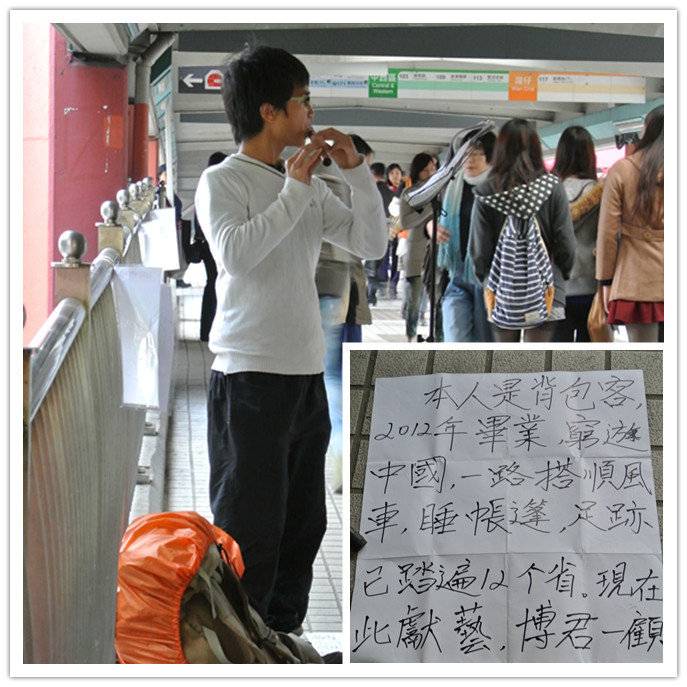 中西區
Central & Western
109
113
灣仔
Wan Chai
117
本人是背包客,
2012年畢業,窮遊
中國,一路搭順風
車,睡帳篷,足跡
已踏遍12个省。現在
此獻藝,博君一顧